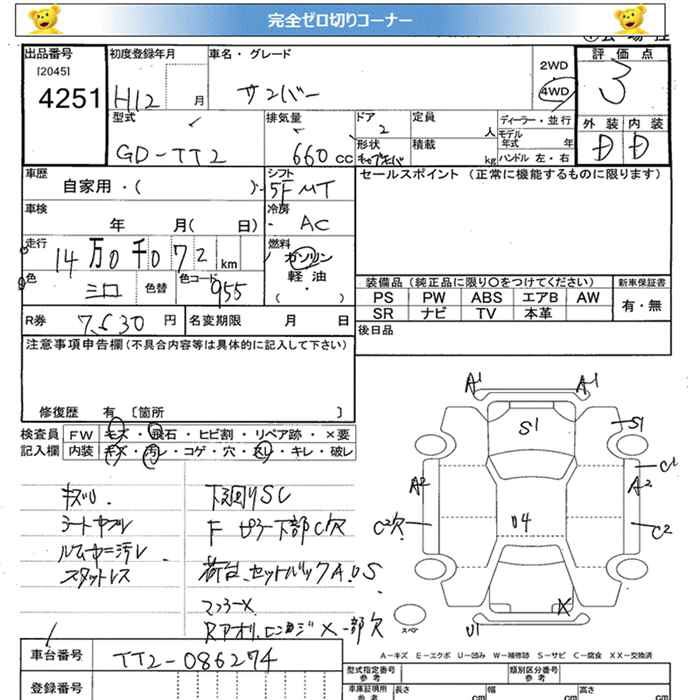 完全ゼロ切りコーナー
出品番号
[2045]
4251
初度登録年月
H12 月
車名・グレード
サンバー
2WD
4WD
評価点
3
外装 内装
D D
型式
GD-TT2
排気量
660 cc
ドア
2
形状
定員
人
積載
kg
ディーラー・並行
モデル
年式 年
ハンドル 左・右
車歴
自家用・( )
シフト
5F MT
セールスポイント (正常に機能するものに限ります)
車検
年 月( 日)
冷房
AC
走行
14万0千072 km
燃料
ガソリン
軽油
( ・ )
色
シロ
色替
色コード
955
装備品 (純正品に限り○をつけてください)
新車保証書
PS PW ABS エアB AW
有・無
SR ナビ TV 本革
R券
7,630 円
名変期限 月 日
後日品
注意事項申告欄 (不具合内容等は具体的に記入して下さい)
修復歴 有 〔箇所 〕
検査員 FW キズ・飛石・ヒビ割・リペア跡・×要
記入欄 内装 キズ・汚レ・コゲ・穴・スレ・キレ・破レ
キズU.
シートヤブレ
ルーム中ニ汚レ
スタットレス
下廻りSC
F ピラー下部C穴
荷台、セットバックA.U.S
マフラーX
A1 A1
S1 S1
C1
A2 A2
C2穴 U4 C2
X
U1
スペア
A-キズ E-エクボ U-凹み W-補修跡 S-サビ C-腐食 XX-交換済
車台番号
TT2-086274
登録番号
型式指定番号
参考
類別区分番号
参考
車庫証明用
参考
長さ cm
幅 cm
高さ cm